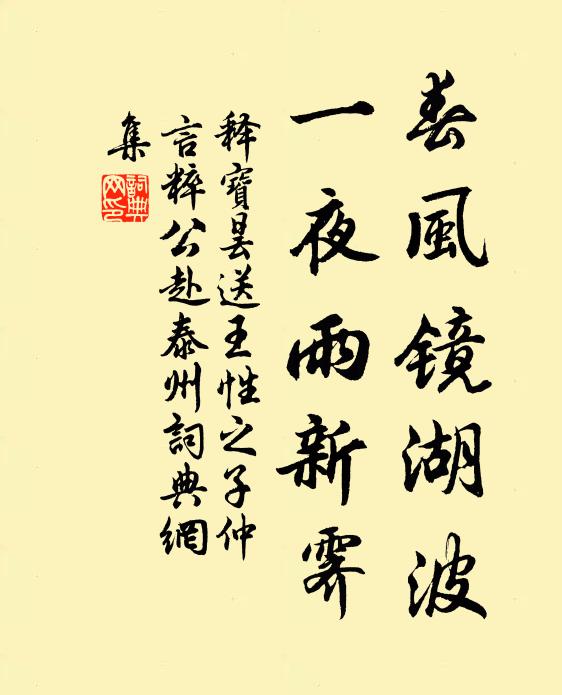 春風镜湖波
一夜雨新霽
释寶曇送王性之子仲
言粹公赴泰州詞典網
集
詞典網印